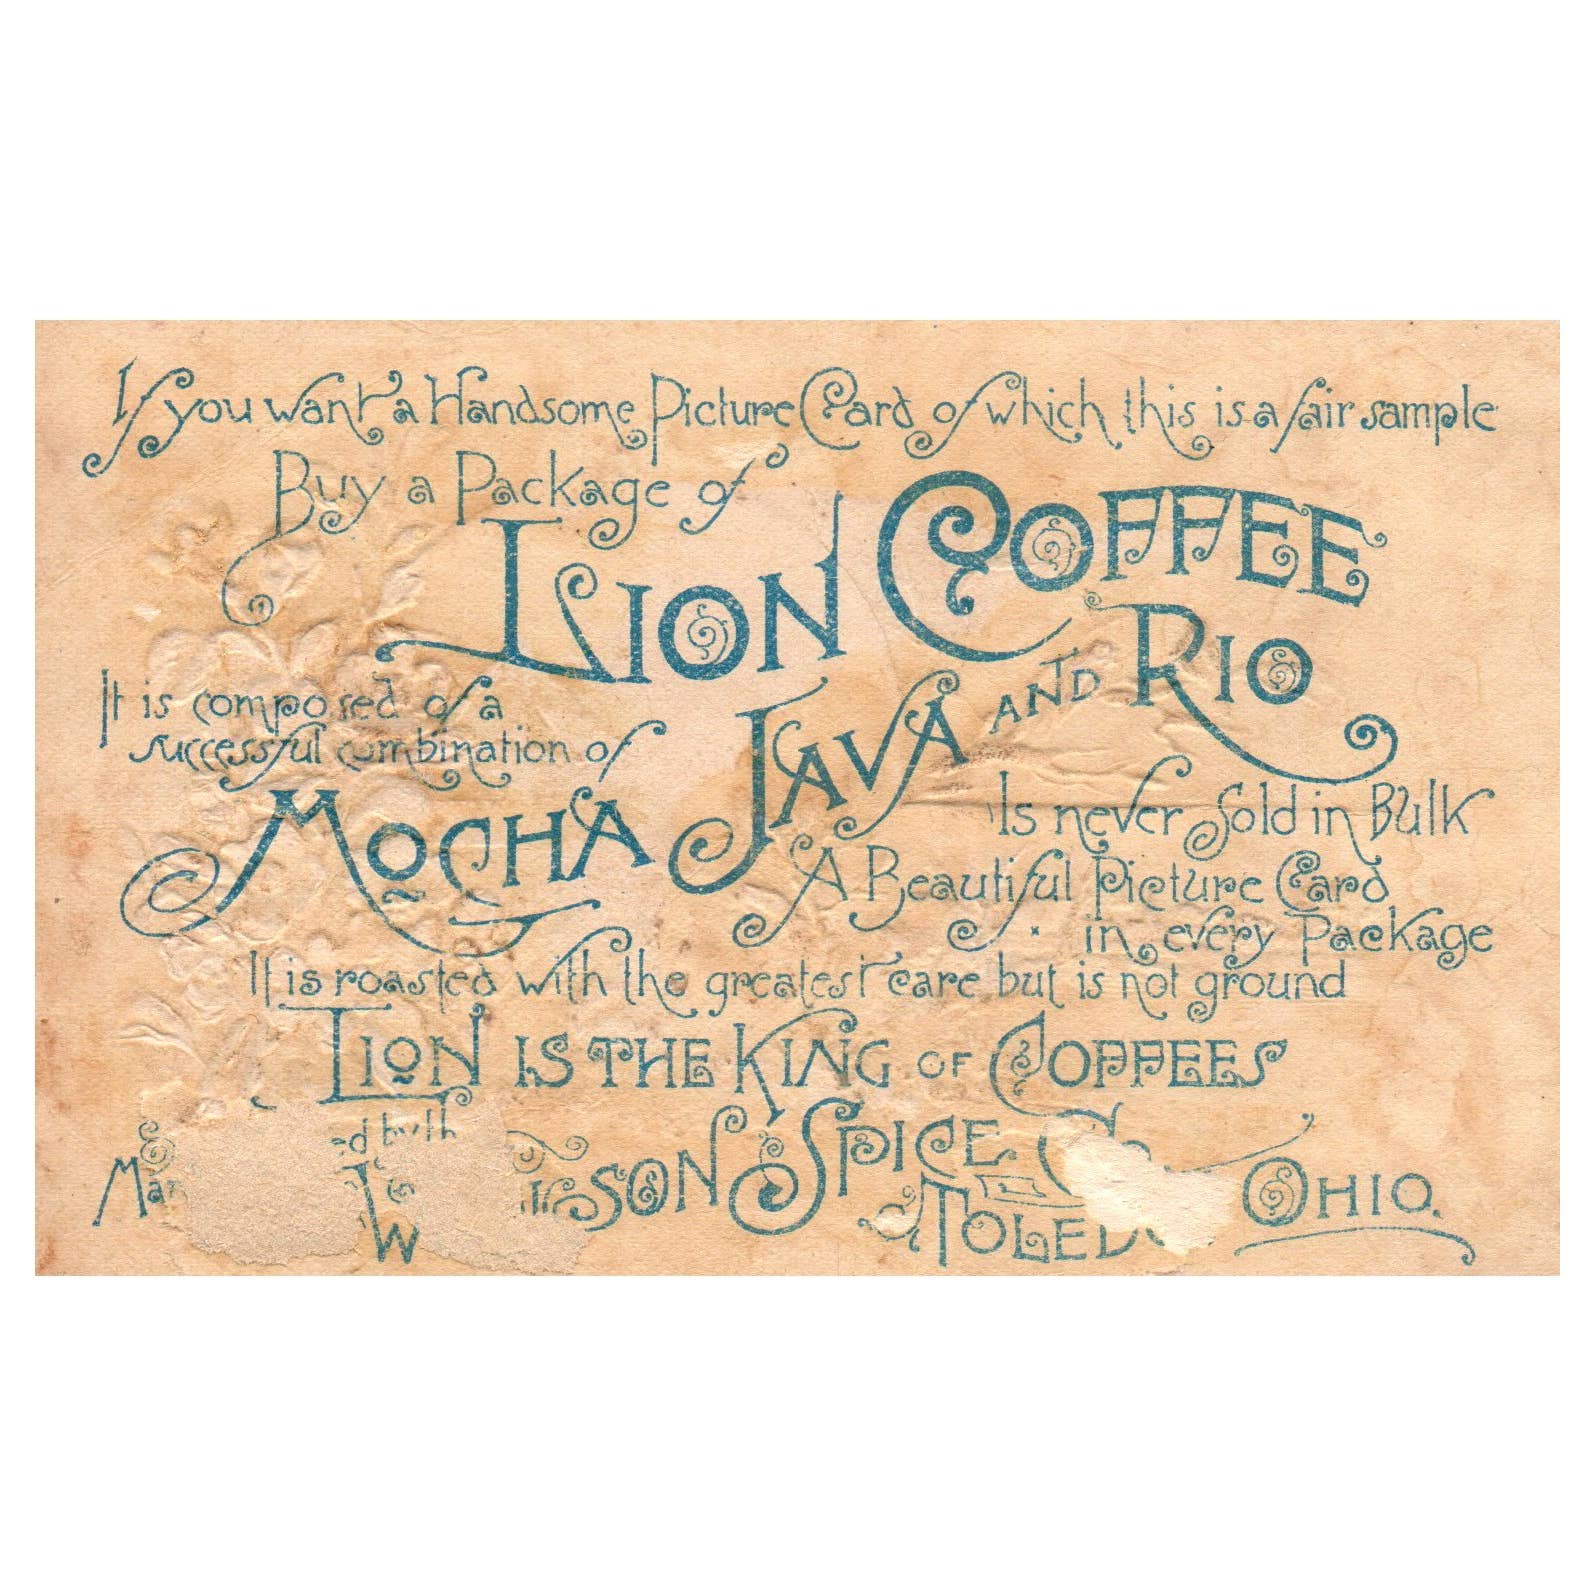 If you want a Handsome Picture Card of which this is a fair sample
Buy a Package of
LION COFFEE
It is composed of a
successful combination of
MOCHA JAVA AND RIO
Is never Sold in Bulk
A Beautiful Picture Card
in every Package
It is roasted with the greatest care but is not ground
LION IS THE KING OF COFFEES
SPICE Co
OHIO.